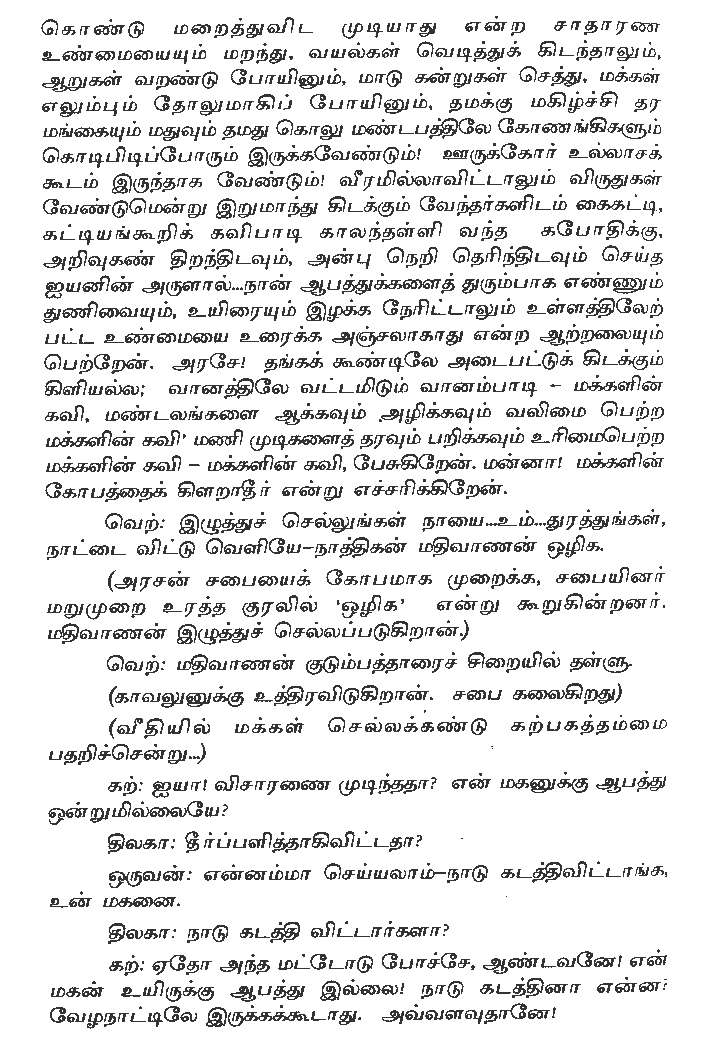 கொண்டு மறைத்துவிட முடியாது என்ற சாதாரண
உண்மையையும் மறந்து, வயல்கள் வெடித்துக் கிடந்தாலும்,
ஆறுகள் வறண்டு போயினும், மாடு கன்றுகள் செத்து, மக்கள்
எலும்பும் தோலுமாகிப் போயினும், தமக்கு மகிழ்ச்சி தர
மங்கையும் மதுவும் தமது கொலு மண்டபத்திலே கோணங்கிகளும்
கொடிபிடிப்போரும் இருக்கவேண்டும்! ஊருக்கோர் உல்லாசக்
கூடம் இருந்தாக வேண்டும்! வீரமில்லாவிட்டாலும் விருதுகள்
வேண்டுமென்று இறுமாந்து கிடக்கும் வேந்தர்களிடம் கைகட்டி,
கட்டியங்கூறிக் கவிபாடி காலந்தள்ளி வந்த கபோதிக்கு,
அறிவுகண் திறந்திடவும், அன்பு நெறி தெரிந்திடவும் செய்த
ஐயனின் அருளால்...நான் ஆபத்துக்களைத் துரும்பாக எண்ணும்
துணிவையும், உயிரையும் இழக்க நேரிட்டாலும் உள்ளத்திலேற்
பட்ட உண்மையை உரைக்க அஞ்சலாகாது என்ற ஆற்றலையும்
பெற்றேன். அரசே! தங்கக் கூண்டிலே அடைபட்டுக் கிடக்கும்
கிளியல்ல; வானத்திலே வட்டமிடும் வானம்பாடி – மக்களின்
கவி, மண்டலங்களை ஆக்கவும் அழிக்கவும் வலிமை பெற்ற
மக்களின் கவி' மணி முடிகளைத் தரவும் பறிக்கவும் உரிமைபெற்ற
மக்களின் கவி – மக்களின் கவி, பேசுகிறேன். மன்னா! மக்களின்
கோபத்தைக் கிளறாதீர் என்று எச்சரிக்கிறேன்.
வெற்: இழுத்துச் செல்லுங்கள் நாயை...உம்...துரத்துங்கள்,
நாட்டை விட்டு வெளியே–நாத்திகன் மதிவாணன் ஒழிக.
(அரசன் சபையைக் கோபமாக முறைக்க, சபையினர்
மறுமுறை உரத்த குரலில் 'ஒழிக' என்று கூறுகின்றனர்.
மதிவாணன் இழுத்துச் செல்லப்படுகிறான்.)
வெற்: மதிவாணன் குடும்பத்தாரைச் சிறையில் தள்ளு.
(காவலுனுக்கு உத்திரவிடுகிறான். சபை கலைகிறது)
(வீதியில் மக்கள் செல்லக்கண்டு கற்பகத்தம்மை
பதறிச்சென்று...)
கற்: ஐயா! விசாரணை முடிந்ததா? என் மகனுக்கு ஆபத்து
ஒன்றுமில்லையே?
திலகா: தீர்ப்பளித்தாகிவிட்டதா?
ஒருவன்: என்னம்மா செய்யலாம்–நாடு கடத்திவிட்டாங்க,
உன் மகனை.
திலகா: நாடு கடத்தி விட்டார்களா?
கற்: ஏதோ அந்த மட்டோடு போச்சே, ஆண்டவனே! என்
மகன் உயிருக்கு ஆபத்து இல்லை! நாடு கடத்தினா என்ன?
வேழநாட்டிலே இருக்கக்கூடாது. அவ்வளவுதானே!